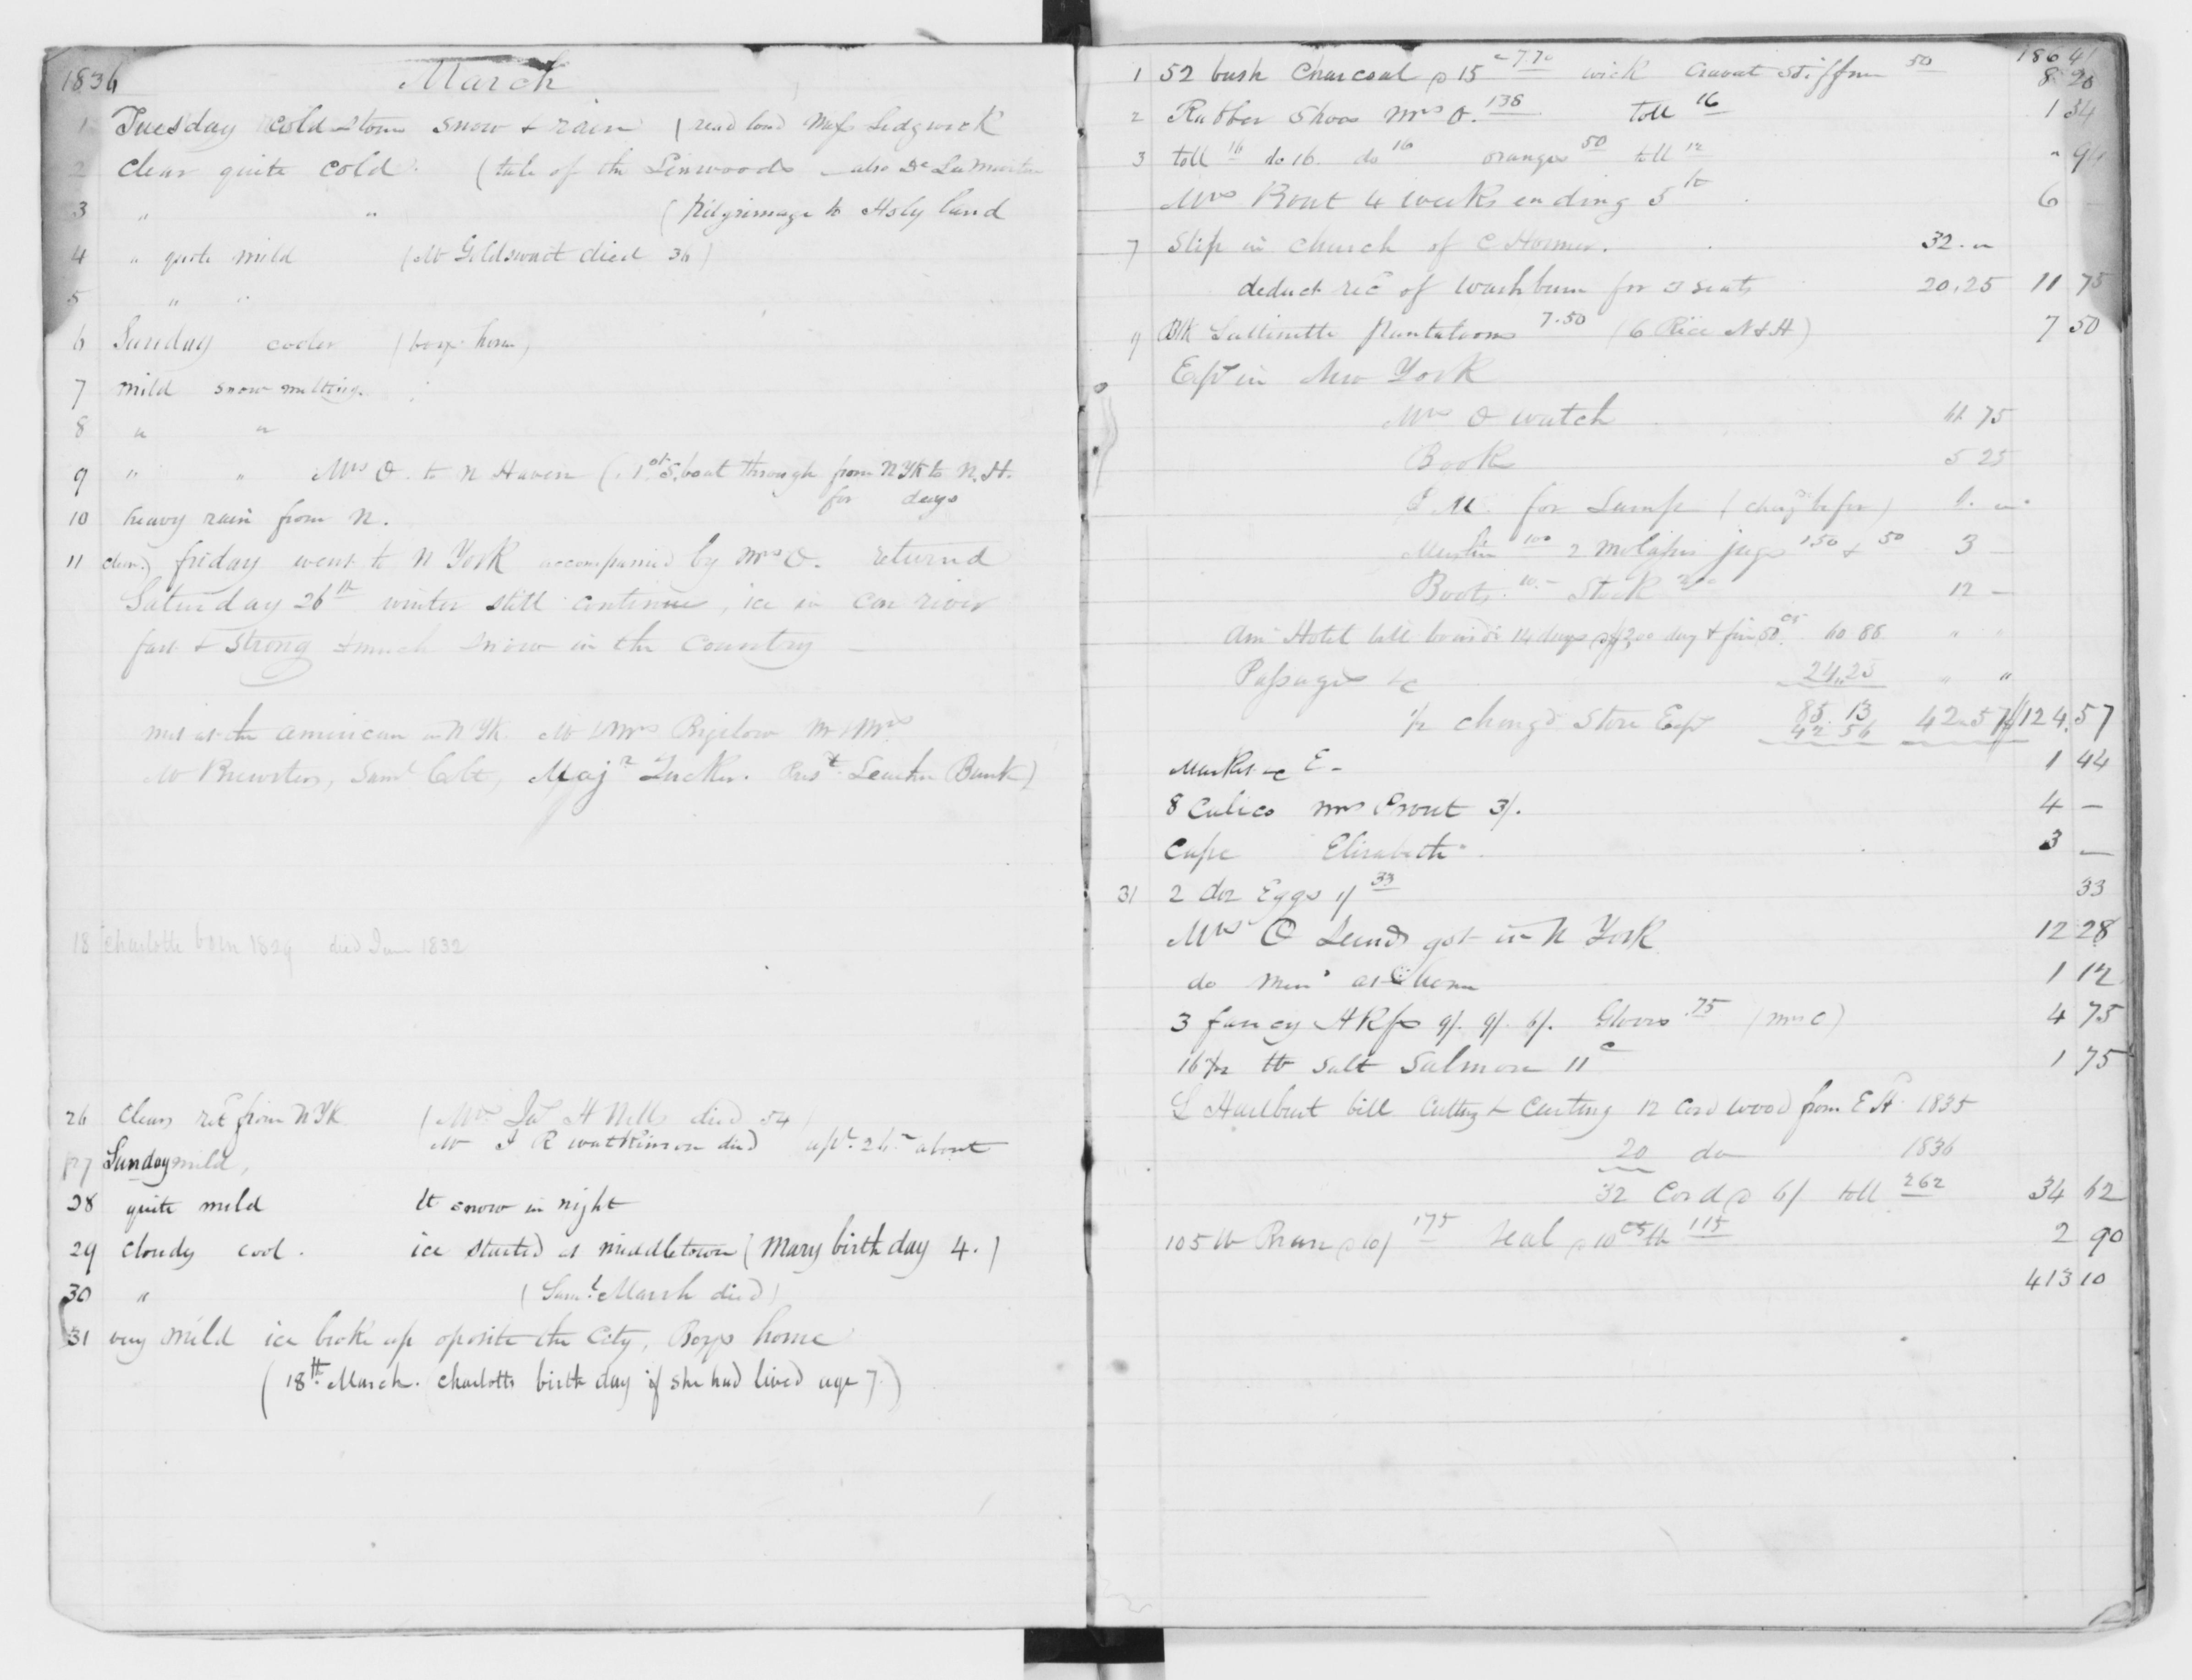 1836 March
1 Tuesday cold storm snow & rain ( read loud Miss Sedgwick
2 Clear quite cold. (tale of the Linwoods – also De La Martin
3 " " ( Pilgrimage to Holy land
4 " quite mild (Mr Goldswait died 36)
5 " "
6 Sunday cooler (boys home)
7 mild snow melting
8 " "
9 " " Mrs O. to N Haven (. 1st S. boat through from N Yk to N. H.
for days
10 heavy rain from N.
11 clear) friday went to N York accompanied by Mrs O. returnd
Saturday 26th winter still continues, ice in Con river
fast & strong & much snow in the country —
met at the american in N Yk. Mr & Mrs Bigelow Mr & Mrs
Mr Brewster, Saml Colt, Majr Tucker. Prest Leather Bank)
18 Charlotte born 1829 died Jun 1832
26 Clear ret from N Yk (Mr Jas H Wells died 54)
Mr J R Watkinson died apl. 26. about
27 Sunday mild,
28 quite mild lt snow in night
29 Cloudy cool. ice started at middletown (Mary birth day 4.)
30 " (Saml. Marsh died)
31 very mild ice broke up oposite the City, Boys home
(18th March. Charlotts birth day if she had lived age 7.)
186 41
1 52 bush Charcoal @ 15 770 wick Cravat Stiffner 50 8 20
2 Rubber Shoes Mrs O. 138 toll 16 1 54
3 toll 16 do 16. do 16 oranges 50 toll 12 " 94
Mrs Prout 4 weeks ending 5th 6 –
7 Slip in Church of C Hosmer. 32. "
deduct rec of Washburn for 3 seats 20.25 11 75
9 Blk Sattinette Pantaloons 7.50 (6 Rice N & H) 7 50
Exps in New York
Mrs O watch
Books 5 25
for Lamp (chargd before)
100 2 molasses jugs 1.50 & 50 3 —
Boots 10.– Stock 200 12 –
Am Hotel bill boards 14 days @ $2.00 day & fire 50 cs 60 88 " "
Passages &c 24.25 " "
85.13
1/2 chargd Store Exps 42 56 42.57 124.57
Market &c E – 1 44
8 Calico Mrs Prout 3/. 4 —
Cape Elizabeth 3 —
31 2 doz Eggs 1/ 33 33
Mrs O Sunds got in N York 12 28
do 1 12
3 fancy HKfs 9/. 9/. 6/. Gloves .75 (Mrs C) 4 75
16 1/2 lb Salt Salmon 11c 1 75
L Hurlburt bill Cutting & Carting 12 Cord wood from E H 1835
20 do 1836
32 Cord @ 6/ toll 262 34 62
105 lb Bran @ 10/ 175 Veal @ 10 cs lb 115 2 90
413 10